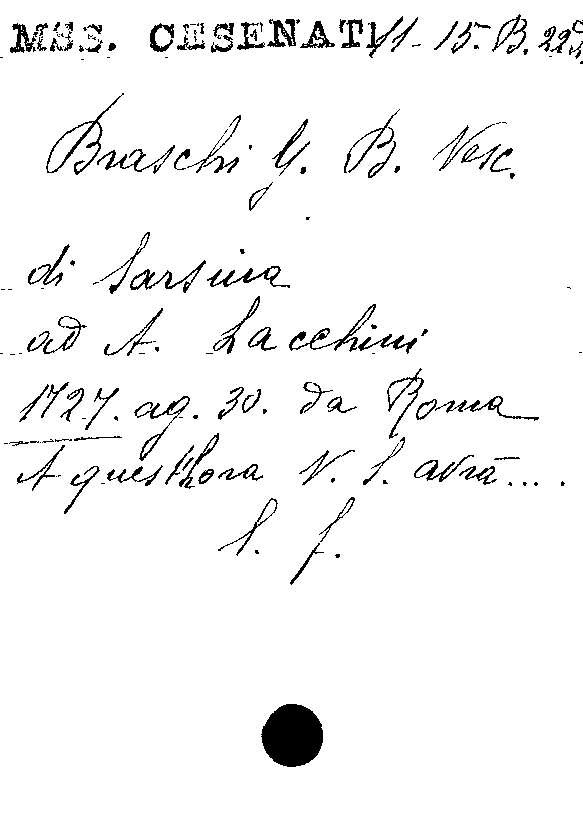 MSS. CESENATI 11-15. B. 22
Braschi G. B. Vesc.
di Sarsina
ad A. Lacchini
1727. ag. 30. da Roma
A quest'hora V. S. avrà....
S. f.